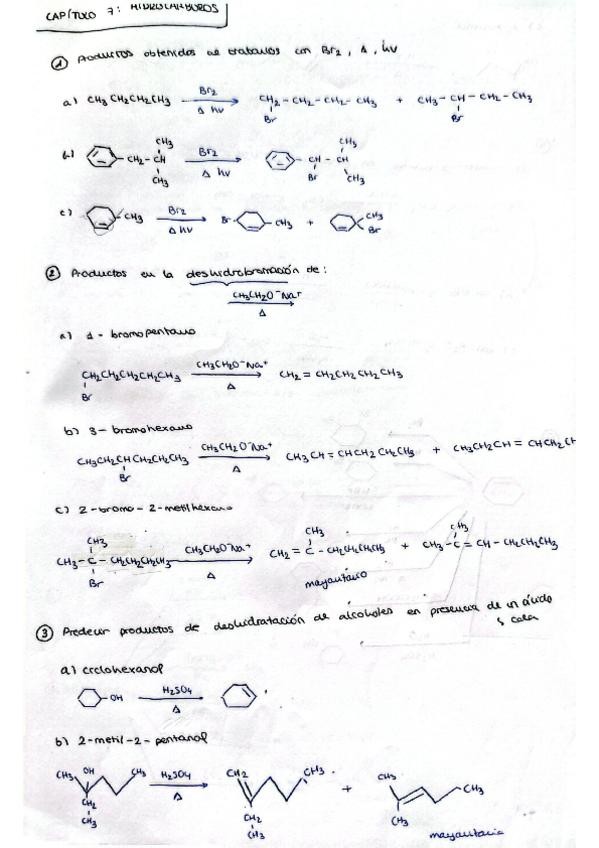 CAPÍTULO 7: HIDROCARBUROS
① Productos obtenidos al tratarlos con Br2, Δ, hν
a) CH3CH2CH2CH3 Br2 Δ hν CH2-CH2-CH2-CH3 + CH3-CH-CH2-CH3
Br Br
b) CH2-CH CH3 CH3 Br2 Δ hν CH-CH CH3 Br CH3
c) CH3 Br2 Δ hν Br CH3 + CH3 Br
② Productos en la deshidrobromación de:
CH3CH2O⁻Na⁺
Δ
a) 1-bromopentano
CH2CH2CH2CH2CH3 CH3CH2O⁻Na⁺ Δ CH2=CH2CH2CH2CH3
Br
b) 3-bromohexano
CH3CH2CHCH2CH2CH3 CH3CH2O⁻Na⁺ Δ CH3CH=CHCH2CH2CH3 + CH3CH2CH=CHCH2CH
Br
c) 2-bromo-2-metilhexano
CH3 CH3 CH3
CH3-C-CH2CH2CH2CH3 CH3CH2O⁻Na⁺ Δ CH2=C-CH2CH2CH2CH3 + CH3-C=CH-CH2CH2CH3
Br mayoritario
③ Predecir productos de deshidratación de alcoholes en presencia de un ácido
y calor
a) ciclohexanol
OH H2SO4 Δ
b) 2-metil-2-pentanol
CH3 OH CH3 H2SO4 Δ CH2 CH3 + CH3 CH3
CH2 CH2 CH3
CH3 CH3 mayoritario